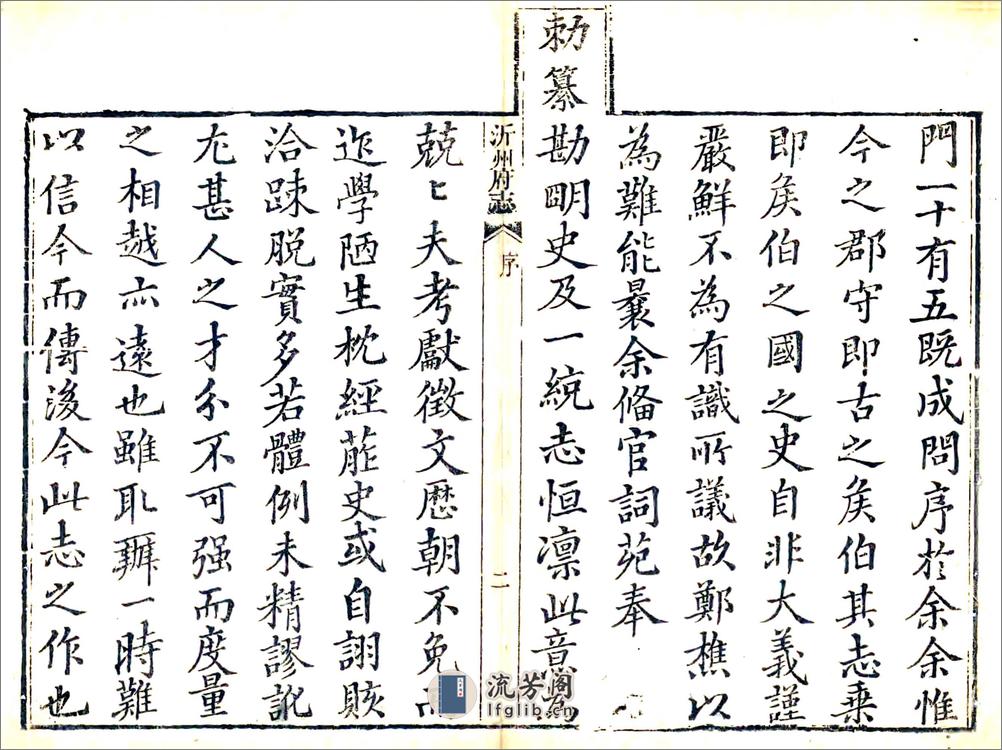 門一十有五既成問序扵余余惟
今之郡守即古之矦伯其志乗
即矦伯之國之史自非大義謹
嚴鮮不為有識所議故鄭樵以
為難能曩余俻官詞苑奉
勅纂
勘明史及一統志恒凛此意為
沂州府志
序
二
兢〻夫考獻徵文歷朝不免
迩學陋生枕經葄史或自詡賅
洽踈脱實多若體例未精謬訛
尤甚人之才分不可强而度量
之相越亦遠也雖取辦一時難
以信今而傳後今此志之作也
流芳阁
lfglib.cn